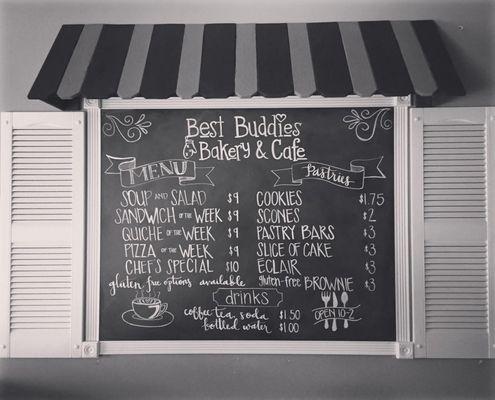 Best Buddies
Bakery & Cafe
MENU
SOUP AND SALAD $9
SANDWICH OF THE WEEK $9
QUICHE OF THE WEEK $9
PIZZA OF THE WEEK $9
CHEF'S SPECIAL $10
gluten free options available
Pastries
COOKIES $1.75
SCONES $2
PASTRY BARS $3
SLICE OF CAKE $3
ECLAIR $3
gluten-free BROWNIE $3
drinks
coffee, tea, soda $1.50
bottled water $1.00
OPEN 10-2